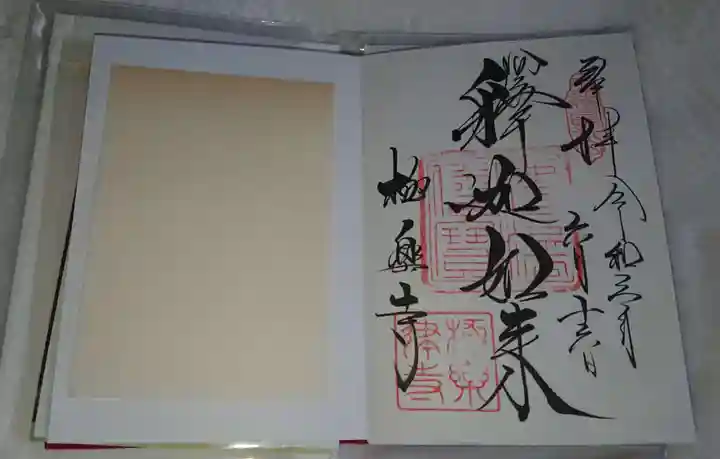 奉拝
令和三年
六月十六日
釋迦如来
極楽寺
極楽律寺